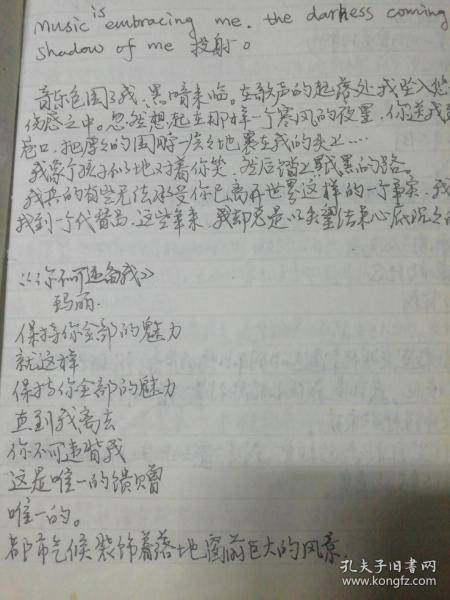 music is embracing me. the darkess coming
shadow of me 投射。
音乐包围了我、黑暗来临。在歌声的起落处我坠入
伤感之中。忽然想起在那样一个寒风的夜里,你送我
巷口,把厚厚的围脖一清々地裹在我的头上....
我像个孩子似的地对着你笑,然后踏上黑的路。
我真的有些无法承受你已离开世界这样的一个事实,我
找到一个代替品,这些年来,我却总是以失望结束心底
《你不可违背我》
玛丽.
保持你全部的魅力
就这样
保持你全部的魅力
直到我离去
你不可违背我
这是唯一的馈赠
唯一的。
都市气候装饰着落地窗前巨大的风景.
孔夫子旧书网
www.kongfz.com